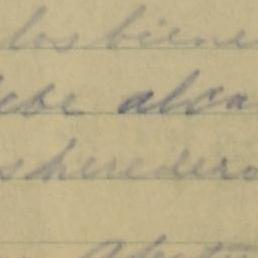 los biene
ebe alca
sheredero